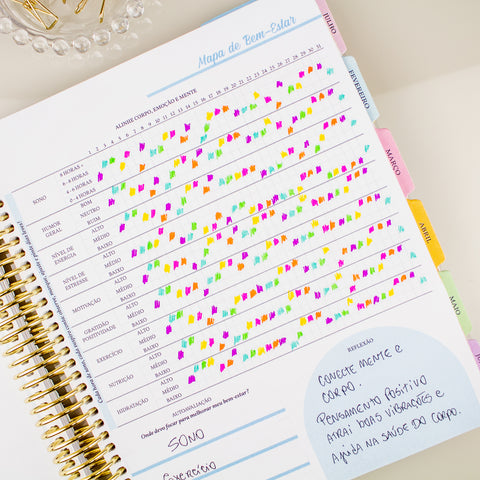 Mapa de Bem-Estar
ALINHE CORPO, EMOÇÃO E MENTE
1 2 3 4 5 6 7 8 9 10 11 12 13 14 15 16 17 18 19 20 21 22 23 24 25 26 27 28 29 30 31
SONO
8 HORAS +
6-8 HORAS
4-6 HORAS
0-4 HORAS
HUMOR GERAL
BOM
NEUTRO
RUIM
NÍVEL DE ENERGIA
ALTO
MÉDIO
BAIXO
NÍVEL DE ESTRESSE
ALTO
MÉDIO
BAIXO
MOTIVAÇÃO
ALTO
MÉDIO
BAIXO
GRATIDÃO
POSITIVIDADE
ALTO
MÉDIO
BAIXO
EXERCÍCIO
ALTO
MÉDIO
BAIXO
NUTRIÇÃO
ALTO
MÉDIO
BAIXO
HIDRATAÇÃO
ALTO
MÉDIO
BAIXO
AUTOAVALIAÇÃO
Onde devo focar para melhorar meu bem-estar?
SONO
Exercício
REFLEXÃO
CONECTE MENTE E
CORPO.
PENSAMENTO POSITIVO
ATRAI BOAS VIBRAÇÕES E
AJUDA NA SAÚDE DO CORPO.
FEVEREIRO
MARÇO
ABRIL
MAIO